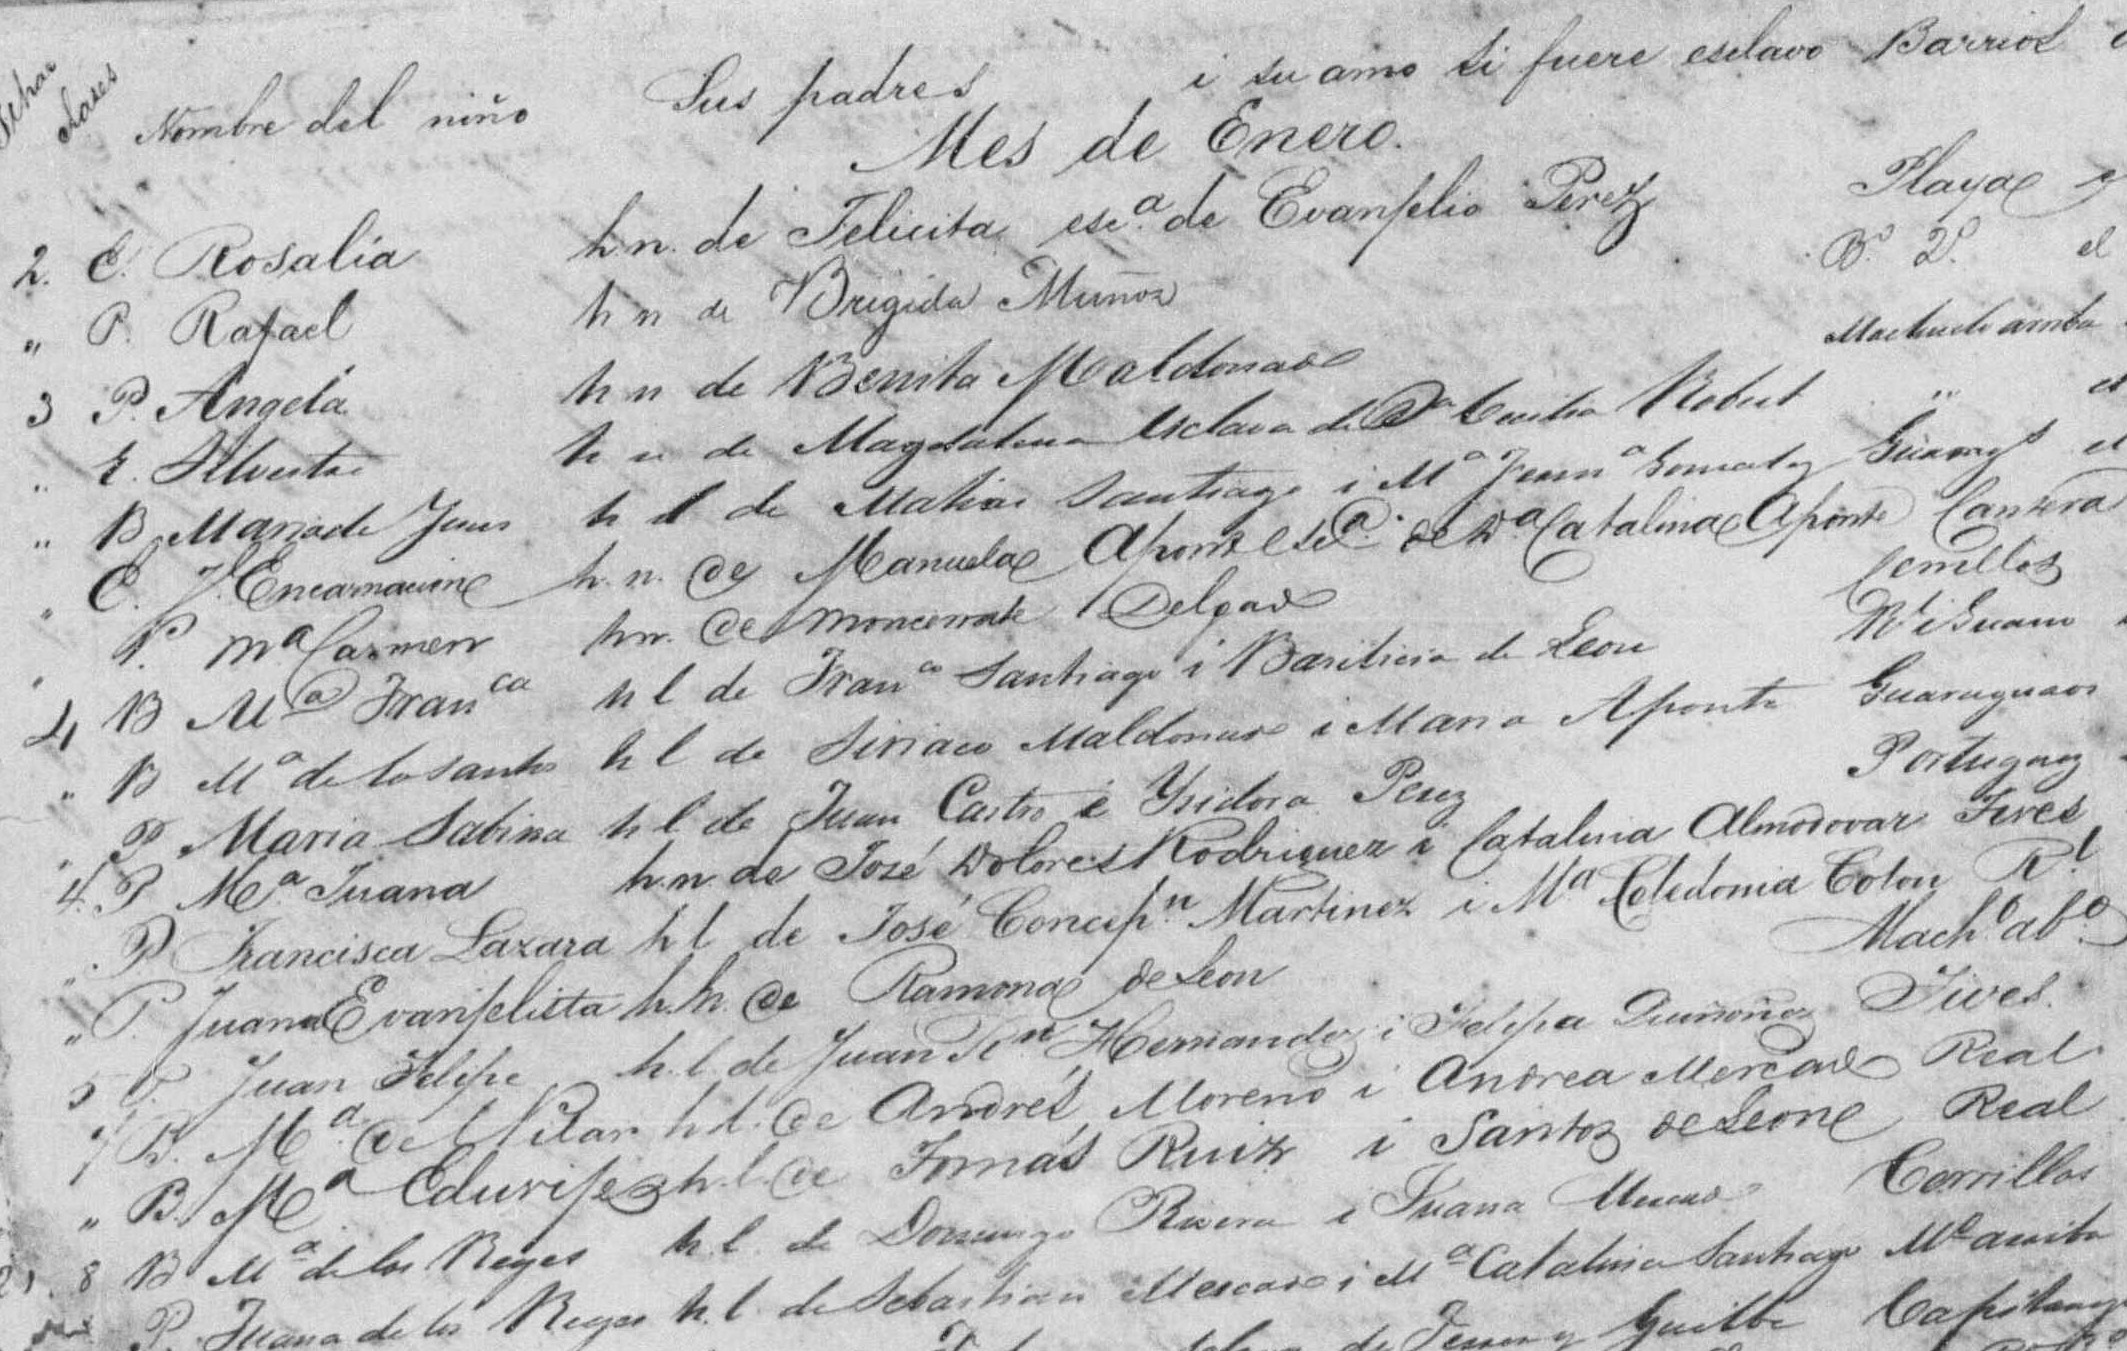 Fechas Clases Nombre del niño Sus padres i su amo si fuere esclavo Barrios
Mes de Enero.
2. E. Rosalia h.n. de Felicita esc.a de Evanjelio Perez Playa
" P. Rafael h n de Brigida Muñoz B.o 2.o el
3 P. Angela h n de Benita Maldonado Machuelo arriba
" E. Silvestre h n de Magdalena esclava de D.a Cecilia Robert " el
" B Maria de Jesus h l de Matias Santiago i M.a Juan.a Gonzalez
" E. J. Encarnacion h.n. de Manuela Aponte esc.a de D.a Catalina Aponte Cantera
" P. M.a Carmen h n. de Moncerrate Delgado Cerrillos
4 B M.a Fran.ca h l de Fran.co Santiago i Basilicia de Leon
" B M.a de los santos h l de Siriaco Maldonado i Maria Aponte Guaraguaos
" P Maria Sabina h l de Juan Castro é Ysidora Perez Portuguez
4. P M.a Juana h.n. de José Dolores Rodriguez i Catalina Almodovar Tives
" P Francisca Lazara h l de José Concep.n Martinez i M.a Celedonia Colon R.l
" P. Juana Evanjelista h.n. de Ramona de Leon Mach.o ab.o
5 P. Juan Felipe h.l. de Juan R.n Hernandez i Felipa Quiñones Tives.
7 B. M.a del Pilar h.l. de Andrés Moreno i Andrea Mercado Real
" B. M.a Eduvijes h.l. de Tomás Ruiz i Santos de Leon Real
8 B M.a de los Reyes h.l. de Domingo Rivera i Juana Mercado Cerrillos
P. Juana de los Reyes h.l. de Sebastian Mercado i M.a Catalina Santiago M.o arriba
de Guilbe Capitanejo